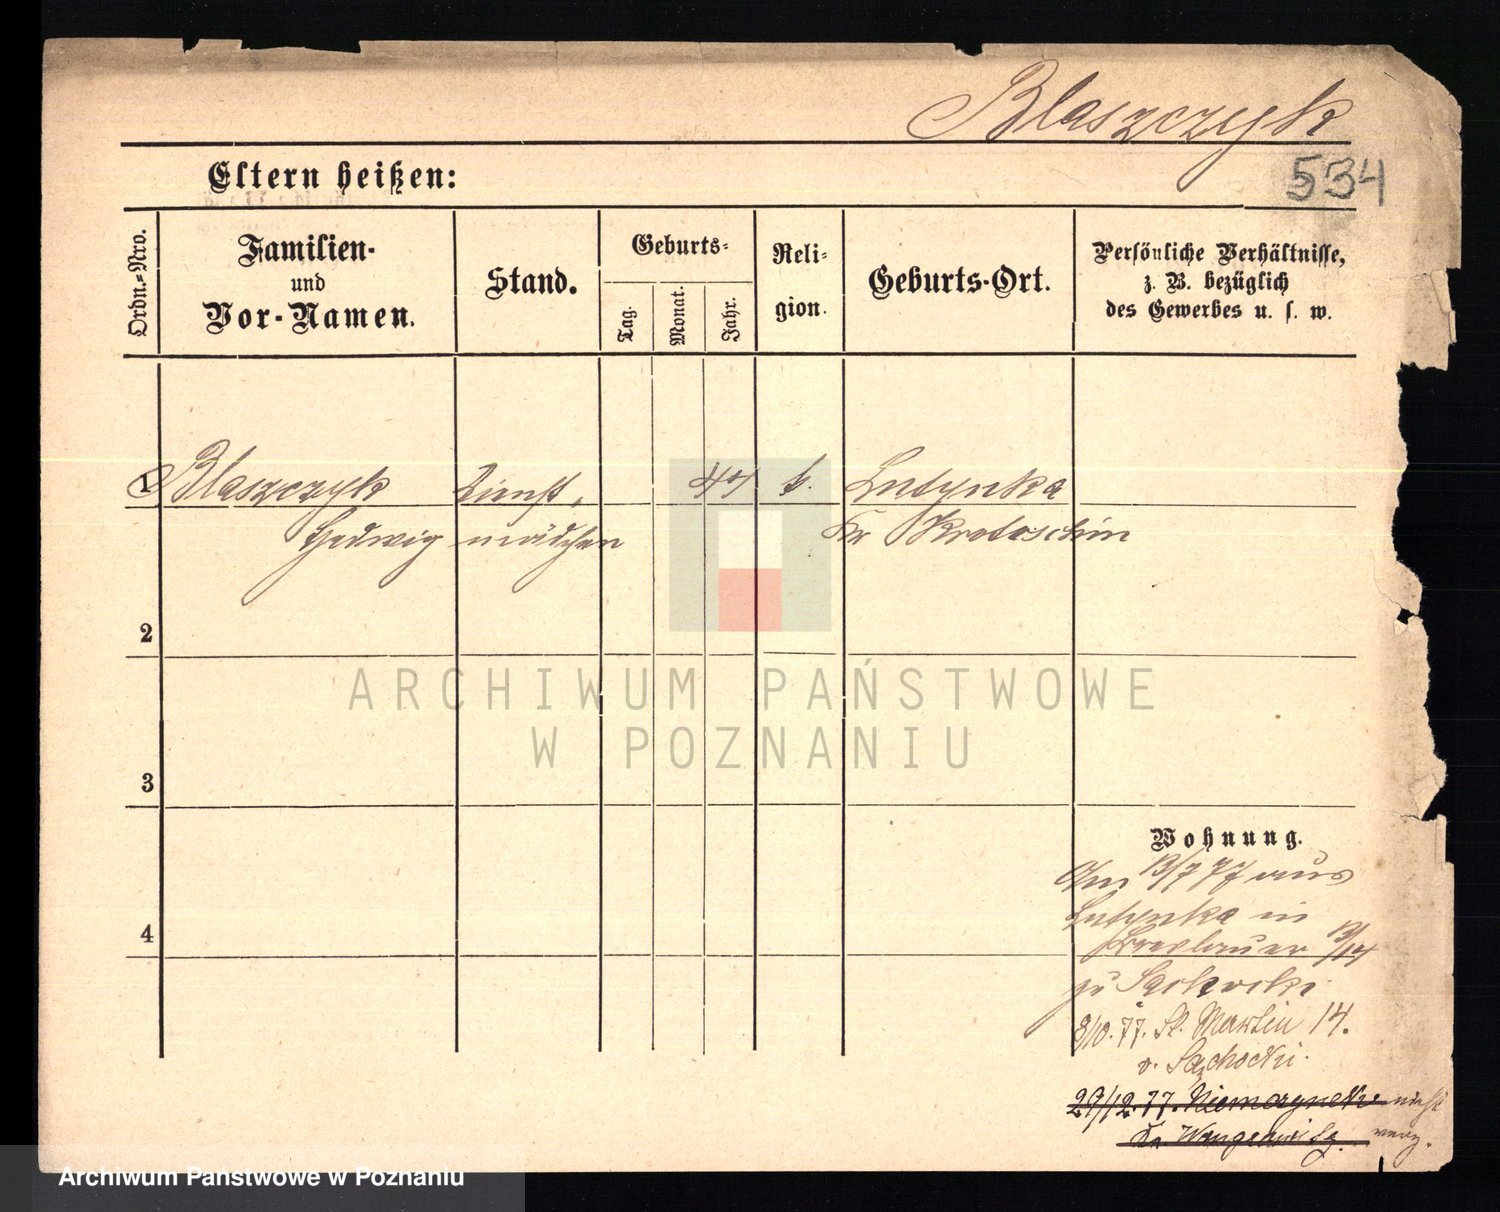 Blaszczyk
534
Eltern heißen:
Ordn.-Nro.
Familien-
und
Vor-Namen.
Stand.
Geburts-
Tag.
Monat.
Jahr.
Reli-
gion.
Geburts-Ort.
Persönliche Verhältnisse,
z. B. bezüglich
des Gewerbes u. s. w.
1 Blaszczyk Dienst- 44 k. Lutynka
Hedwig mädchen Kr Krotoschin
2
3
4
Wohnung.
Am 13/7 77 aus
Lutynka in
Breslauer 13/14
zu
8/10. 77. St. Martin 14.
v. Sąchocki.
29/12. 77. nicht
Kr. Wongrowitz. verz.
ARCHIWUM PAŃSTWOWE
W POZNANIU
Archiwum Państwowe w Poznaniu